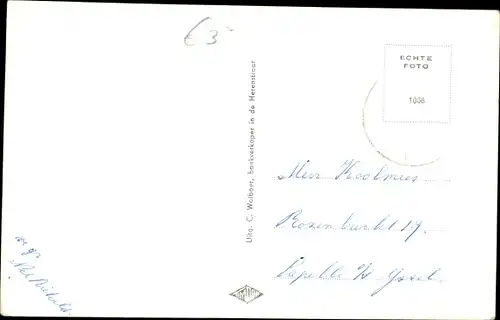 € 3-
ECHTE
FOTO
1008
Uitg. C. Walboer, boekverkoper in de Herenstraat
Mevr Koolmees
Rozenburcht 19.
Capelle a/d Yssel.